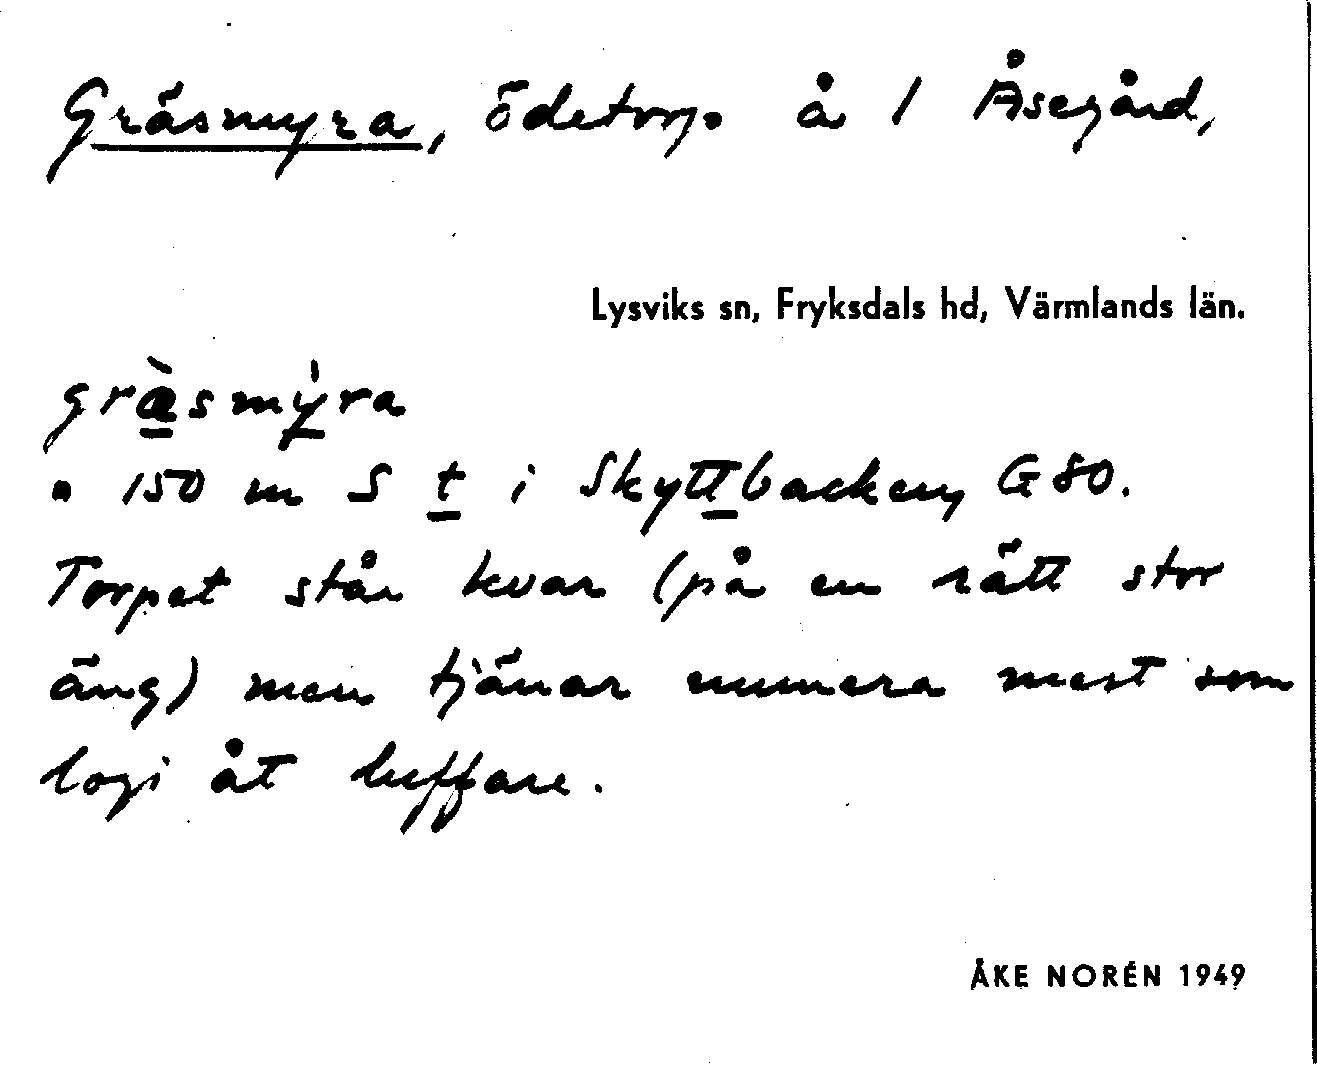 Gräsmyra, ödetorp å 1 Åsegård,
Lysviks sn, Fryksdals hd, Värmlands län.
gràsmỳra
150 m S t i Skyttbacken, G 80.
Torpet står kvar (på en rätt stor
äng) men tjänar numera mest som
logi åt luffare.
ÅKE NORÉN 1949